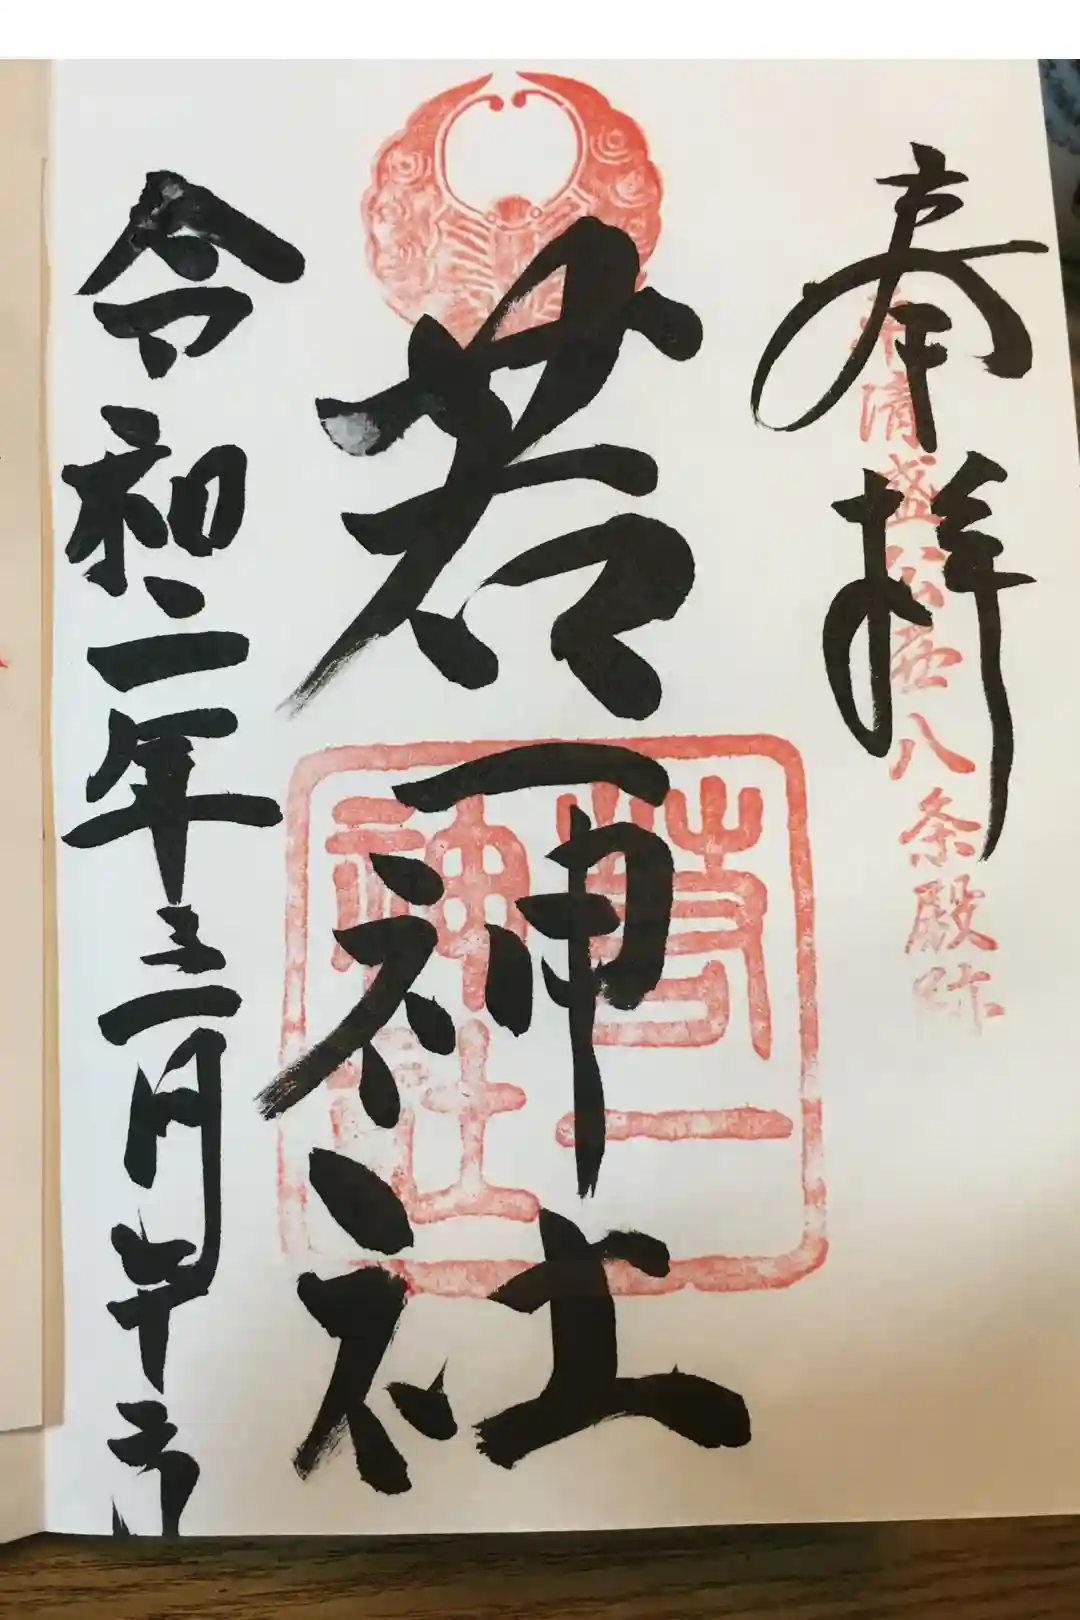 奉拝
平清盛公西八条殿跡
若一神社
若一神社
令和二年三月